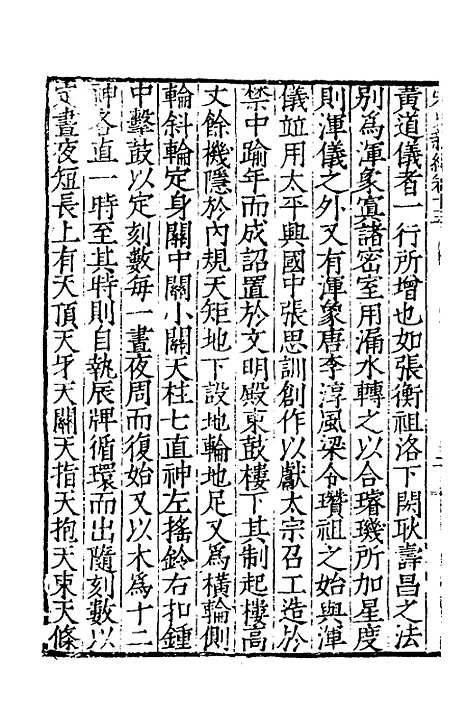 黃道儀者一行所增也如張衡祖洛下閎耿壽昌之法
別為渾象寘諸密室用漏水轉之以合璿璣所加星度
則渾儀之外又有渾象唐李淳風梁令瓚祖之始與渾
儀並用太平興國中張思訓創作以獻太宗召工造於
禁中踰年而成詔置於文明殿東鼓樓下其制起樓高
丈餘機隱於內規天矩地下設地輪地足又為橫輪側
輪斜輪定身關中關小關天柱七直神左搖鈴右扣鍾
中擊鼓以定刻數每一晝夜周而復始又以木為十二
神各直一時至其時則自執辰牌循環而出隨刻數以
定晝夜短長上有天頂天牙天關天指天抱天束天條